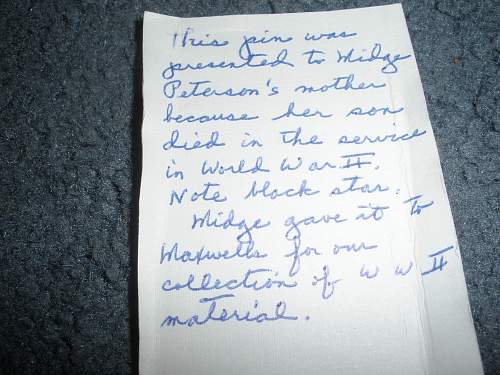 This pin was
presented to Midge
Peterson's mother
because her son
died in the service
in World War II.
Note black star.
Midge gave it to
Maxwells for our
collection of W W II
material.